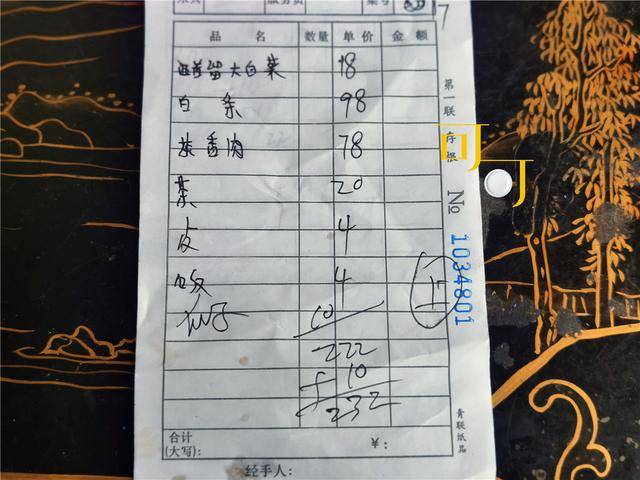 7
品 名 数量 单价 金额
醋溜大白菜 18
白条 98
茶香肉 78
菜 20
皮 4
饭 4
10
222
+ 10
232
合计
(大写): ¥:
经手人:
第一联 存根
No 1034801
青联纸品